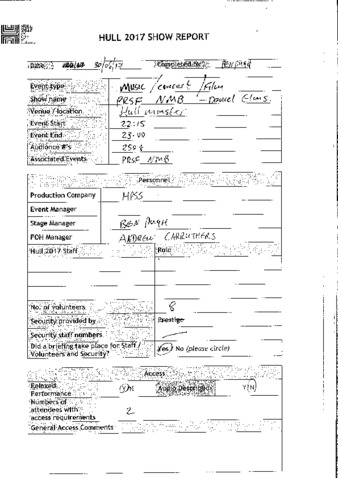 HULL 2017 SHOW REPORT
Date: 30/06/17 Completed by: BEN PUGH
Event type MUSIC / concert / Film
Show name PRSF NMB - Daniel Elms
Venue / location Hull minster
Event Start 22:15
Event End 23:00
Audience #'s 250
Associated Events PRSF NMB
Personnel
Production Company
Event Manager
Stage Manager BEN PUGH
FOH Manager ANDREW CARRUTHERS
Hull 2017 Staff Role
No. of volunteers 8
Security provided by Prestige
Security staff numbers
Did a briefing take place for Staff / Yes / No (please circle)
Volunteers and Security?
Access
Relaxed Y/N Audio Description Y/N
Performance
Numbers of
attendees with 2
access requirements
General Access Comments